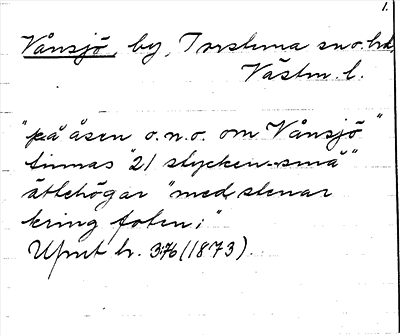 1.
Vånsjö, by, Torstuna sn o. hd,
Västm. l.
"på åsen o.n.o. om Vånsjö"
finnas "21 stycken små"
ättehögar "med stenar
kring foten;"
Upmt h. 376 (1873).